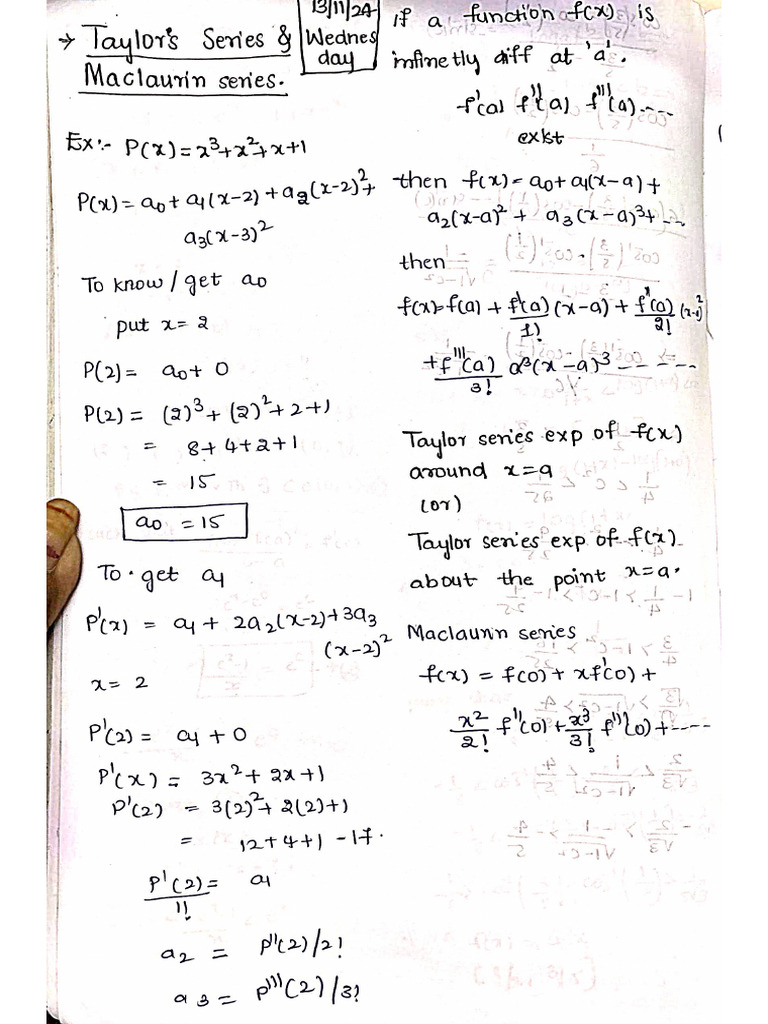 → Taylor's Series &
Maclaurin series.
13/11/24
Wednes
day
Ex:- P(x) = x³+x²+x+1
P(x) = a₀ + a₁(x-2) + a₂(x-2)² +
a₃(x-3)²
To know / get a₀
put x = 2
P(2) = a₀ + 0
P(2) = (2)³ + (2)² + 2 + 1
= 8 + 4 + 2 + 1
= 15
a₀ = 15
To get a₁
P'(x) = a₁ + 2a₂(x-2) + 3a₃
(x-2)²
x = 2
P'(2) = a₁ + 0
P'(x) = 3x² + 2x + 1
P'(2) = 3(2)² + 2(2) + 1
= 12 + 4 + 1 - 17.
P'(2)/1! = a₁
a₂ = P''(2)/2!
a₃ = P'''(2)/3!
if a function f(x) is
infinetly diff at 'a'.
f'(a) f''(a) f'''(a) ----
exist
then f(x) = a₀ + a₁(x-a) +
a₂(x-a)² + a₃(x-a)³ + ---
then
f(x) = f(a) + f'(a)/1! (x-a) + f''(a)/2! (x-a)²
+ f'''(a)/3! a³(x-a)³ ---- ----
Taylor series exp of f(x)
around x=a
(or)
Taylor series exp of f(x)
about the point x=a.
Maclaurin series
f(x) = f(0) + xf'(0) +
x²/2! f''(0) + x³/3! f'''(0) + ----